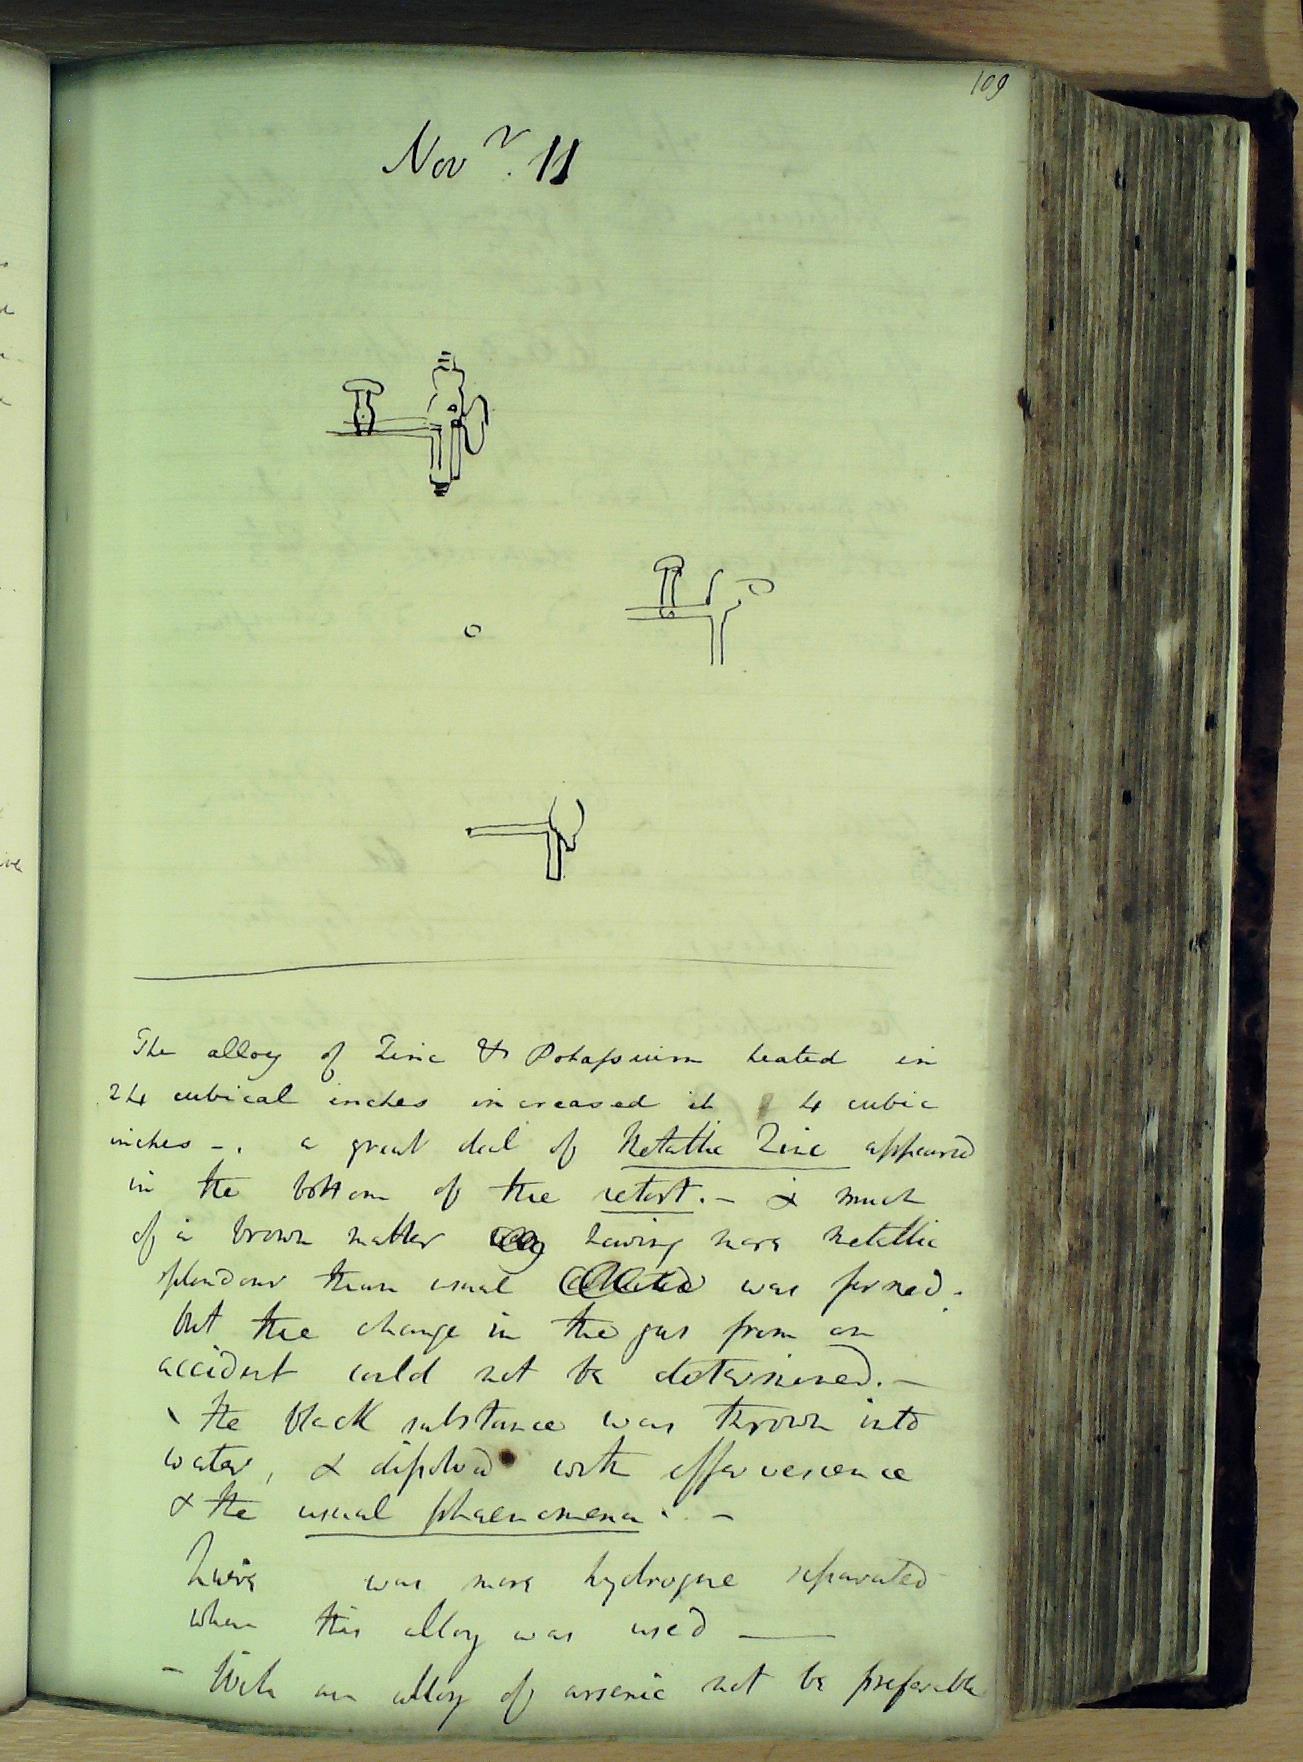 109
Novr. 11
The alloy of Zinc & Potassium heated in
24 cubical inches increased it 4 cubic
inches -. a great deal of Metallic Zinc appeared
in the bottom of the retort. - & much
of a brown matter having more metallic
splendour than usual was formed.
but the change in the gas from an
accident could not be determined. -
the black substance was thrown into
water, & dissolved with effervescence
& the usual phaenomena. -
was more hydrogene separated
when this alloy was used —
- With an alloy of arsenic not be preferable